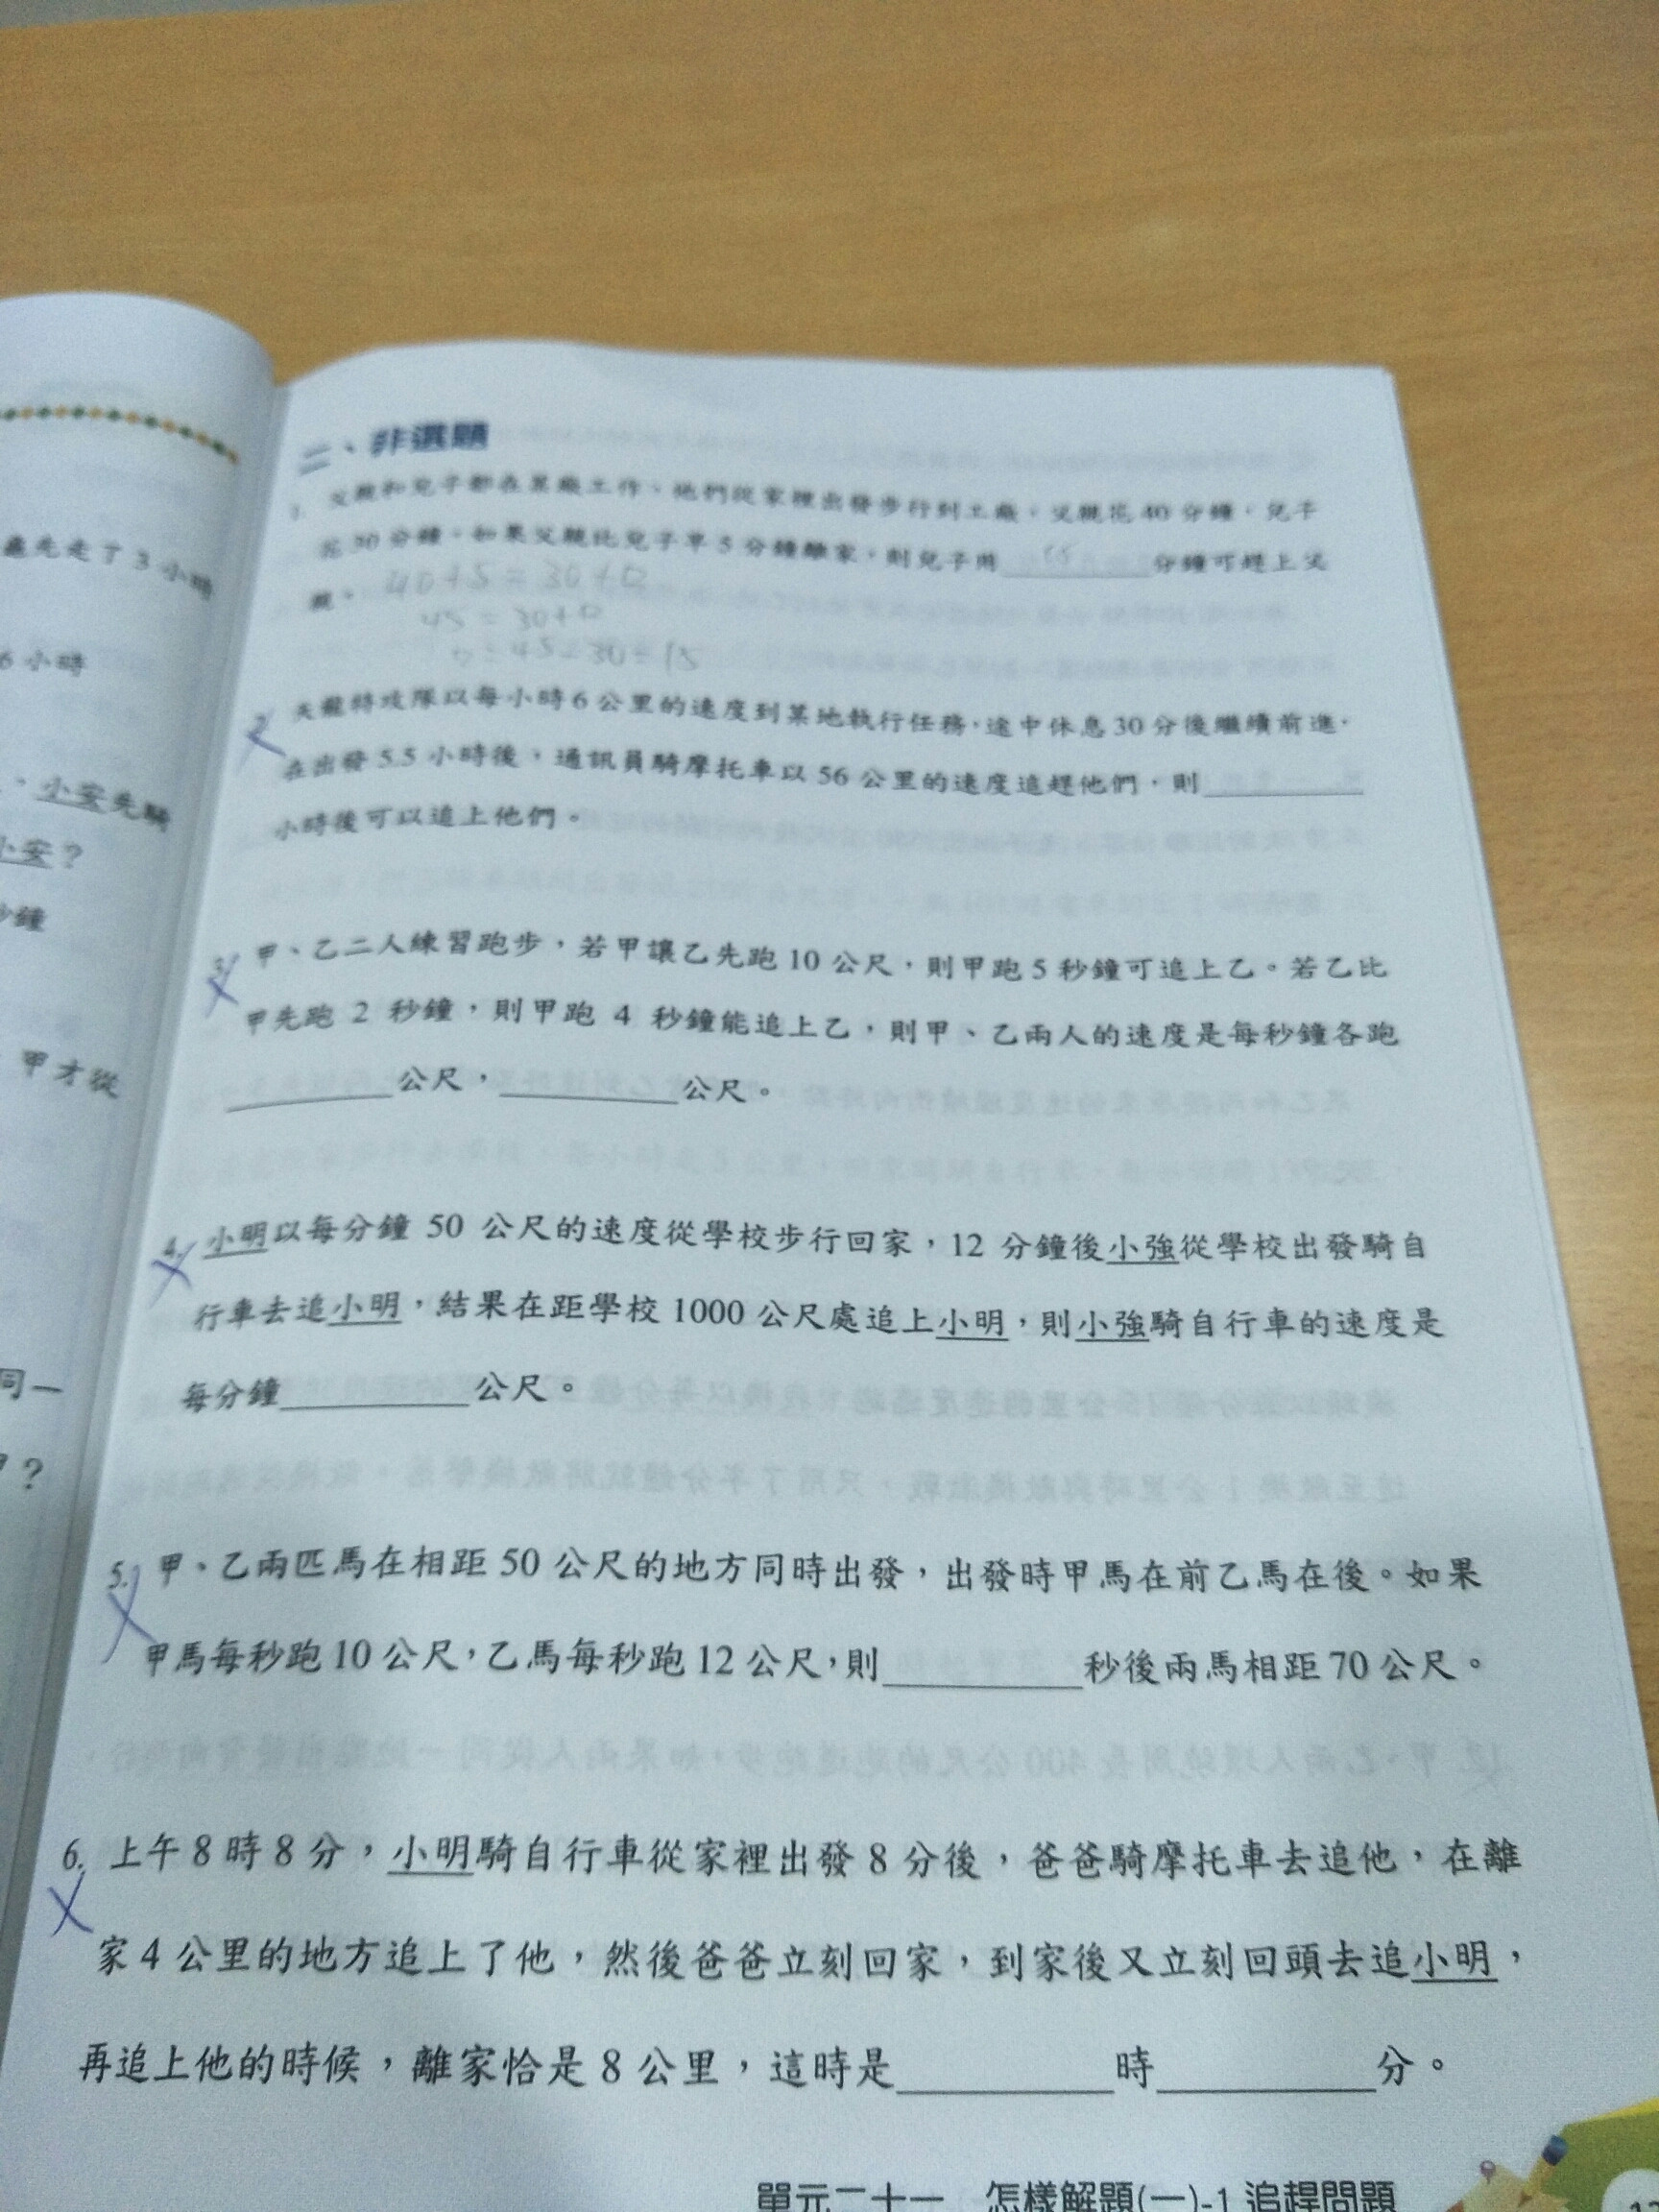 二、非選題
1. 父親和兒子都在某廠工作,他們從家裡出發步行到工廠,父親花40分鐘,兒子
花30分鐘。如果父親比兒子早5分鐘離家,則兒子用 15 分鐘可趕上父
親。 40+5=30+□
45=30+□
□=45-30=15
2. 天龍特攻隊以每小時6公里的速度到某地執行任務,途中休息30分後繼續前進。
在出發5.5小時後,通訊員騎摩托車以56公里的速度追趕他們,則
小時後可以追上他們。
3. 甲、乙二人練習跑步,若甲讓乙先跑10公尺,則甲跑5秒鐘可追上乙。若乙比
甲先跑2秒鐘,則甲跑4秒鐘能追上乙,則甲、乙兩人的速度是每秒鐘各跑
公尺, 公尺。
4. 小明以每分鐘50公尺的速度從學校步行回家,12分鐘後小強從學校出發騎自
行車去追小明,結果在距學校1000公尺處追上小明,則小強騎自行車的速度是
每分鐘 公尺。
5. 甲、乙兩匹馬在相距50公尺的地方同時出發,出發時甲馬在前乙馬在後。如果
甲馬每秒跑10公尺,乙馬每秒跑12公尺,則 秒後兩馬相距70公尺。
6. 上午8時8分,小明騎自行車從家裡出發8分後,爸爸騎摩托車去追他,在離
家4公里的地方追上了他,然後爸爸立刻回家,到家後又立刻回頭去追小明,
再追上他的時候,離家恰是8公里,這時是 時 分。
單元二十一 怎樣解題(一)-1 追趕問題
龜先走了3小時
6小時
、小安先騎
小安?
秒鐘
甲才從
同一
?